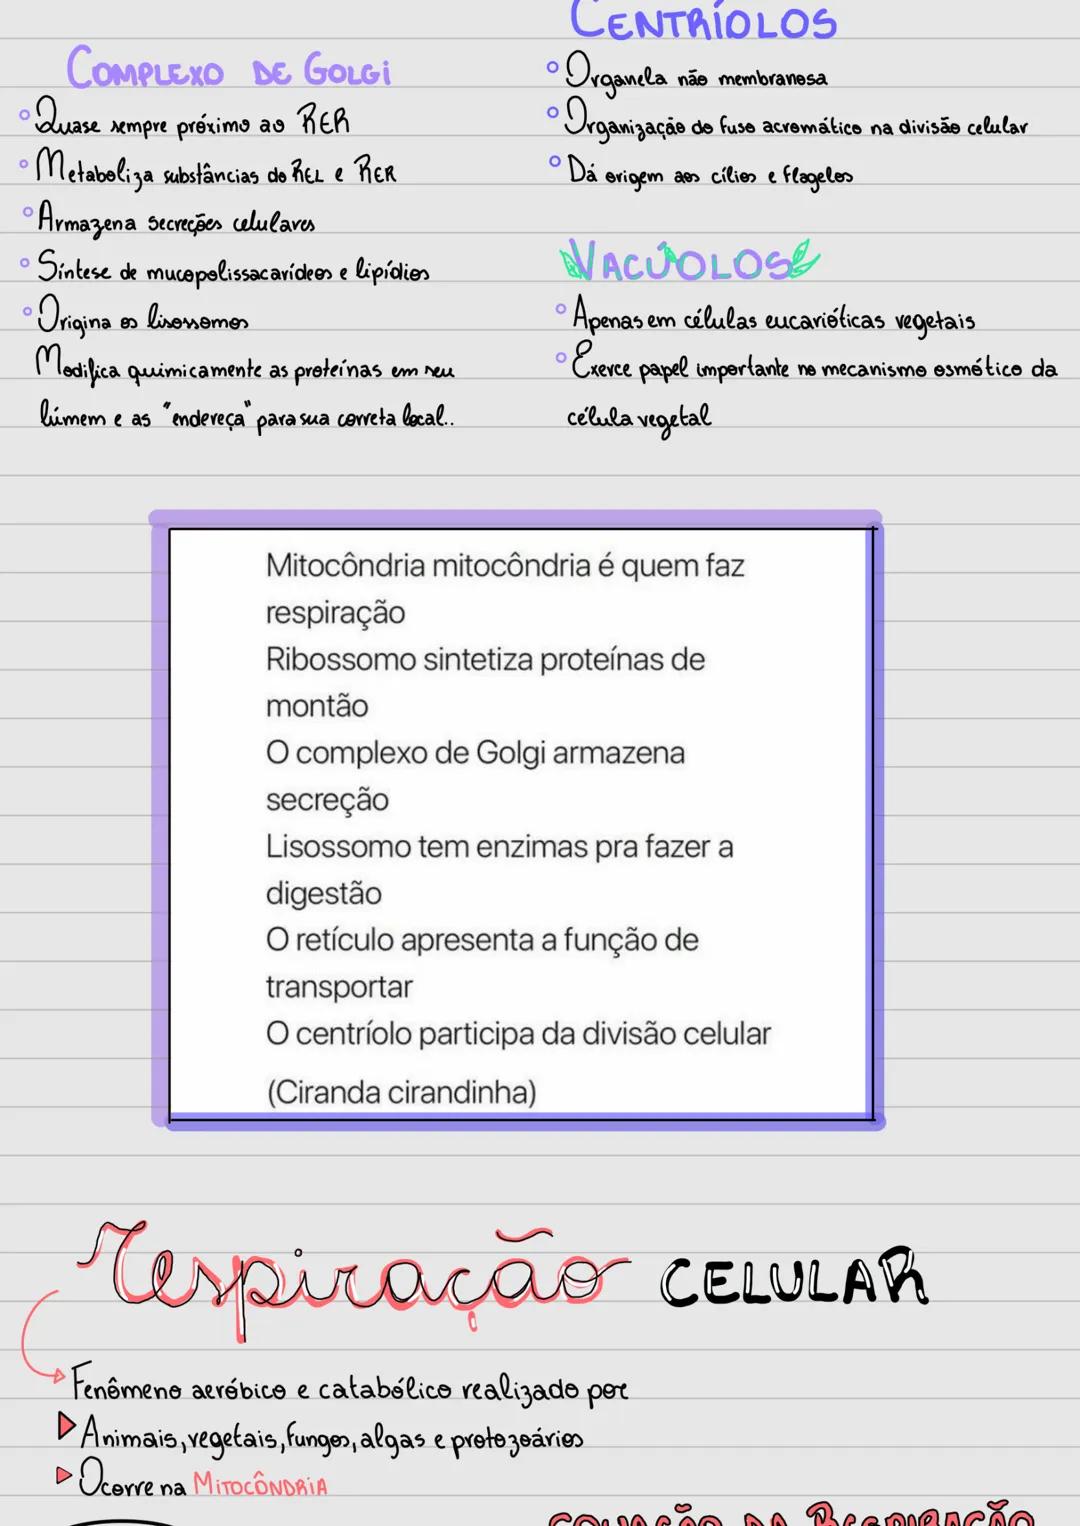 COMPLEXO DE GOLGI
° Quase sempre próximo ao RER
° Metaboliza substâncias do REL e RER
° Armazena secreções celulares
° Síntese de mucopolissacarídeos e lipídios
° Origina os lisossomos
Modifica quimicamente as proteínas em seu
lúmem e as "endereça" para sua correta local..
CENTRÍOLOS
° Organela não membranosa
° Organização do fuso acromático na divisão celular
° Dá origem aos cílios e flagelos
VACÚOLOS
° Apenas em células eucarióticas vegetais
° Exerce papel importante no mecanismo osmótico da
célula vegetal
Mitocôndria mitocôndria é quem faz
respiração
Ribossomo sintetiza proteínas de
montão
O complexo de Golgi armazena
secreção
Lisossomo tem enzimas pra fazer a
digestão
O retículo apresenta a função de
transportar
O centríolo participa da divisão celular
(Ciranda cirandinha)
Respiração CELULAR
Fenômeno aeróbico e catabólico realizado por
Animais, vegetais, fungos, algas e protozoários
Ocorre na MITOCÔNDRIA
EQUAÇÃO DA RESPIRAÇÃO